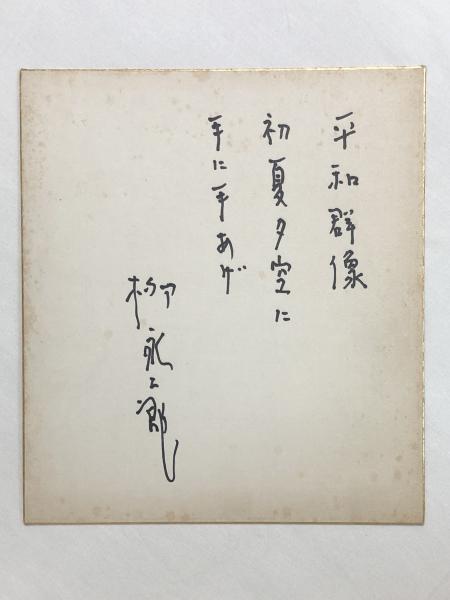 平和群像
初夏夕空に
手に手あげ
柳永二郎